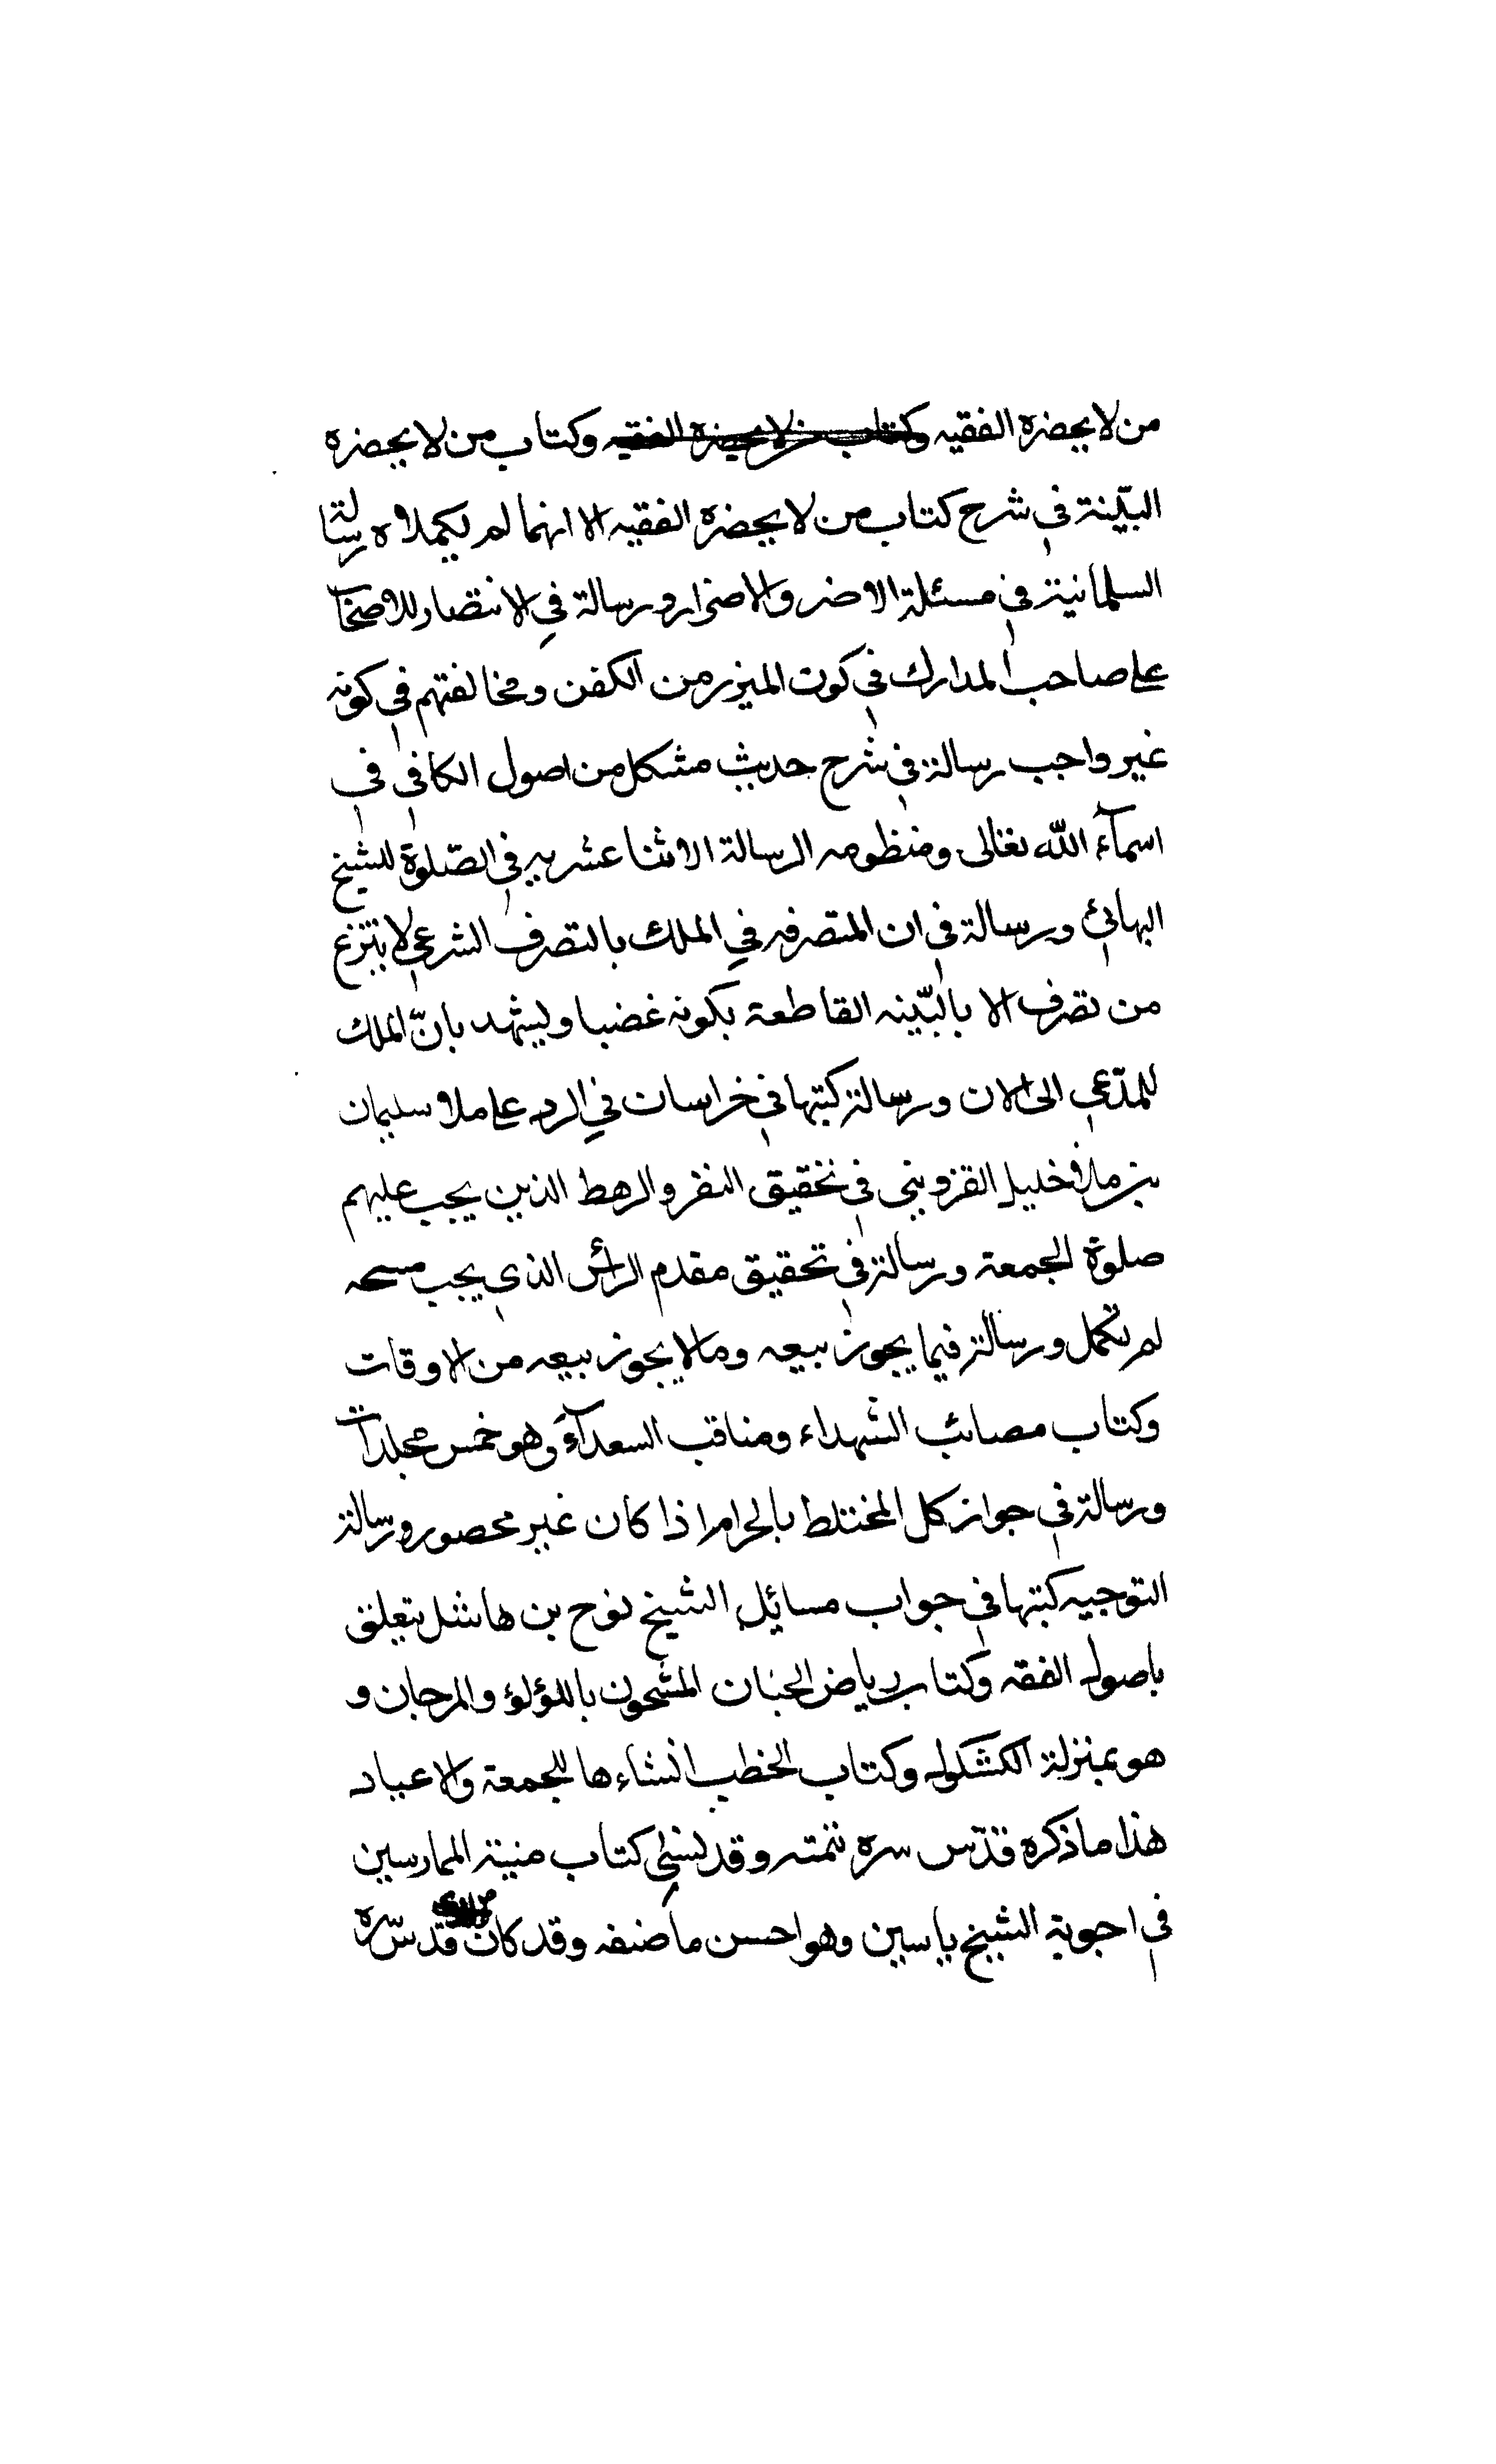 من لا يحضره الفقيه وكتاب من لا يحضره الفقيه وكتاب من لا يحضره
البيّنة في شرح كتاب من لا يحضره الفقيه الا انهما لم يكملا ه رسالة
السلمانية في مسئلة الاضر والاضرار ورسالة في الانتصار للاصحاب
على صاحب المدارك في كون الميزر من الكفن ومخالفتهم في كونه
غير واجب رسالة في شرح حديث مشكل من اصول الكافي في
اسمآء الله تعالى ومنظومه الرسالة الاثنا عشريه في الصّلوة للشيخ
البهائي ورسالة في ان المتصرف في الملك بالتصرف الشرعي لا ينتزع
من تصرف الا بالبيّنه القاطعة بكونه غضبا وليشهد بانّ الملك
للمدّعي الى الان ورسالة كتبها في خراسان في الرد على ملا سليمان
بن ملا خليل القزويني في تحقيق النفر والرهط الذين يجب عليهم
صلوة الجمعة ورسالة في تحقيق مقدم الرأس الذي يجب مسحه
لم تكمل ورسالة فيما يجوز بيعه وما لا يجوز بيعه من الاوقات
وكتاب مصائب الشهداء ومناقب السعدآء وهو خمس مجلدات
ورسالة في جواز كل المختلط بالحرام اذا كان غير محصور ورسالة
التوجيه كتبها في جواب مسائل الشيخ نوح بن هاشل يتعلق
باصول الفقه وكتاب رياض الجنان المشحون باللؤلؤ والمرجان و
هو بمنزلة الكشكول وكتاب الخطب انشاءها للجمعة والاعياد
هذا ما ذكره قدّس سره تتمته وقد نسي كتاب منية الممارسين
في اجوبة الشيخ ياسين وهو احسن ما صنفه وقد كان قدّس سره